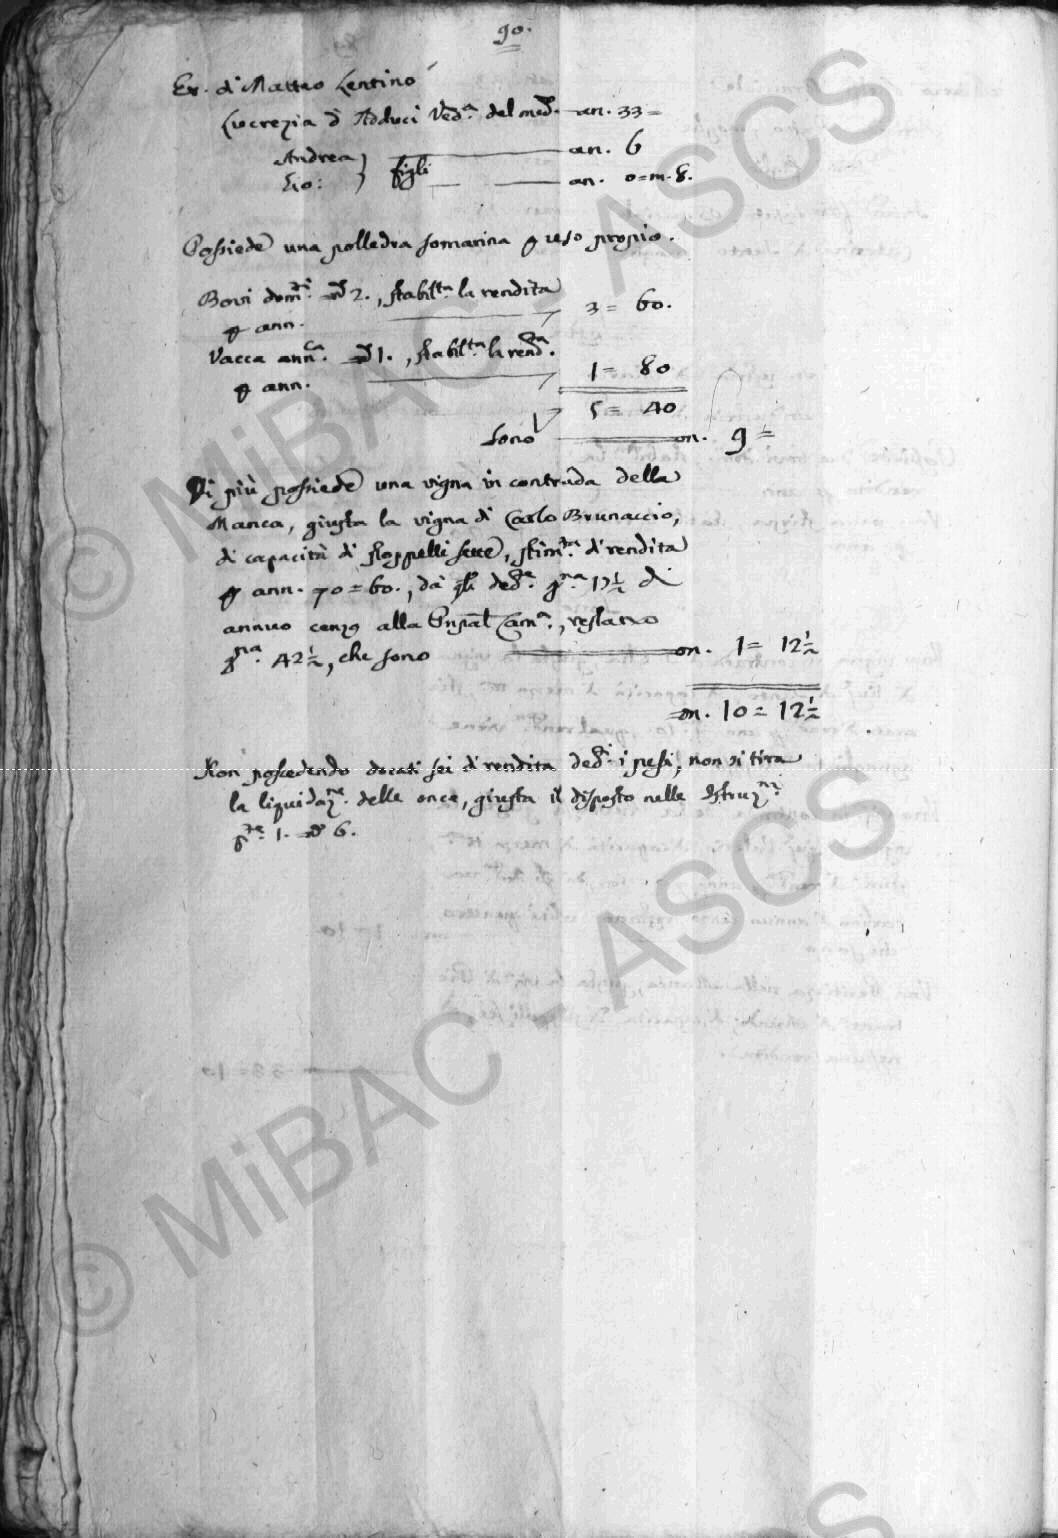 90.
Er. di Matteo Lentino
Lucrezia d'Adduci Ved.ª del med.º an. 33=
Andrea } figli an. 6
Gio: an. 0=m. 8.
Possiede una polledra somarina p uso proprio.
Bovi dom.ti n.º 2., stabil.ta la rendita
p ann. 3= 60.
Vacca ann.ca n.º 1., stabil.ta la rend.ta
p ann. 1= 80
5= 40
sono on. 9=
Di più possiede una vigna in contrada della
Manca, giusta la vigna di Carlo Brunaccio,
di capacità di stoppelli sette, stim.ta di rendita
p ann. 0=60., da q.li ded.te g.na 17½ di
annuo cenzo alla Cam.ª, restano
g.na 42½, che sono on. 1= 12½
on. 10= 12½
Non possedendo docati sei di rendita ded.ti i pesi, non si tira
la liquidaz.ne delle once, giusta il disposto nelle Istruz.ni
p.te 1. n.º 6.
© MiBAC - ASCS
© MiBAC - ASCS